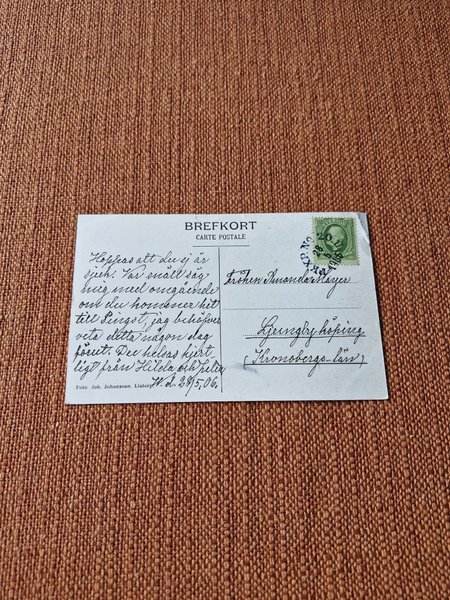 BREFKORT
CARTE POSTALE
Hoppas att du ej är
sjuk. Var snäll säg
mig med omgående
om du kommer hit
till Pingst, jag behöfver
veta detta någon dag
förut. Du helsas hjert-
ligt från Hilda och Julia
W. d. 28/5 06.
Foto Joh. Johansson.
Fröken Amanda Mayer
Ljungby köping
(Kronobergs-län)
PKXP. No